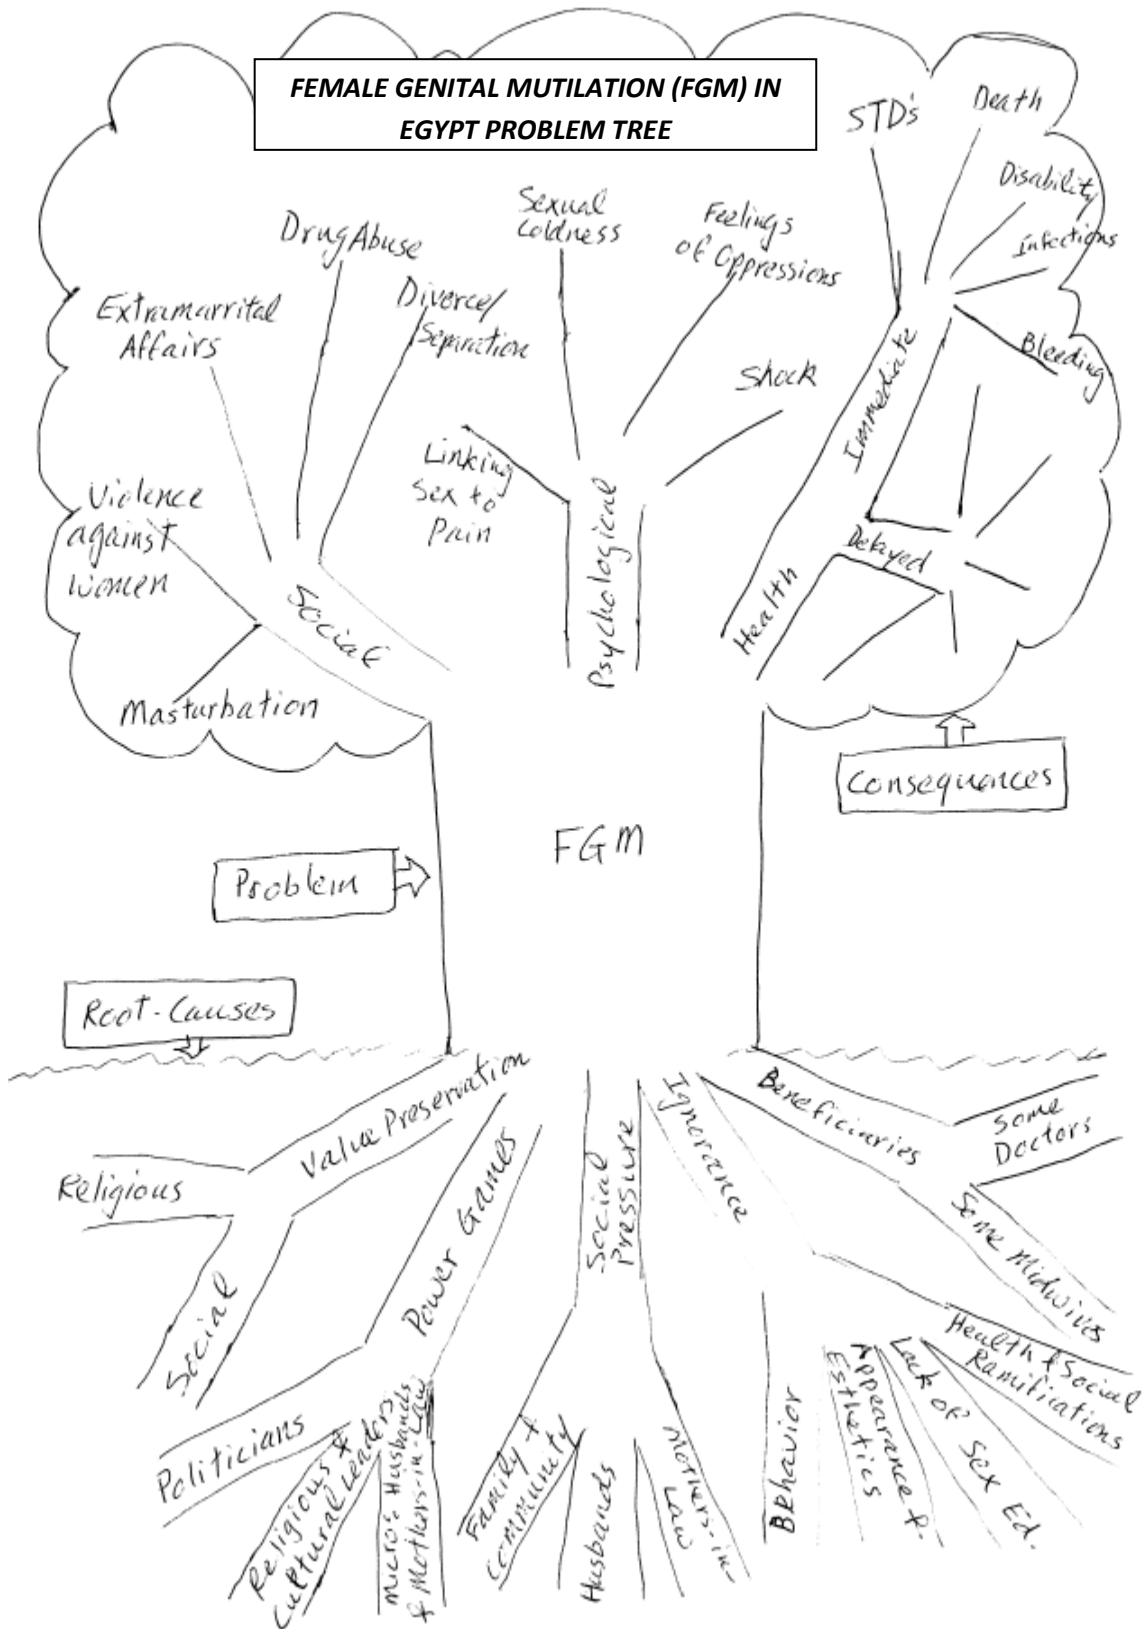 FEMALE GENITAL MUTILATION (FGM) IN
EGYPT PROBLEM TREE
STD's
Death
Disability
Infections
Bleeding
Immediate
Delayed
Health
Sexual
Coldness
Feelings
of Oppressions
Shock
Linking
Sex to
Pain
Psychological
Drug Abuse
Divorce/
Separation
Extramarrital
Affairs
Violence
against
women
Masturbation
Social
Consequances
FGM
Problem
Root-Causes
Value Preservation
Religious
Social
Power Games
Politicians
Religious &
Cultural Leaders
Micro: Husbands
& Mothers-in-Law
Social
Pressure
Family &
Community
Husbands
Mothers-in-
Law
Ignorance
Behavior
Appearance &
Esthetics
Lack of Sex Ed.
Health & Social
Ramifications
Beneficiaries
Some
Doctors
Some Midwives